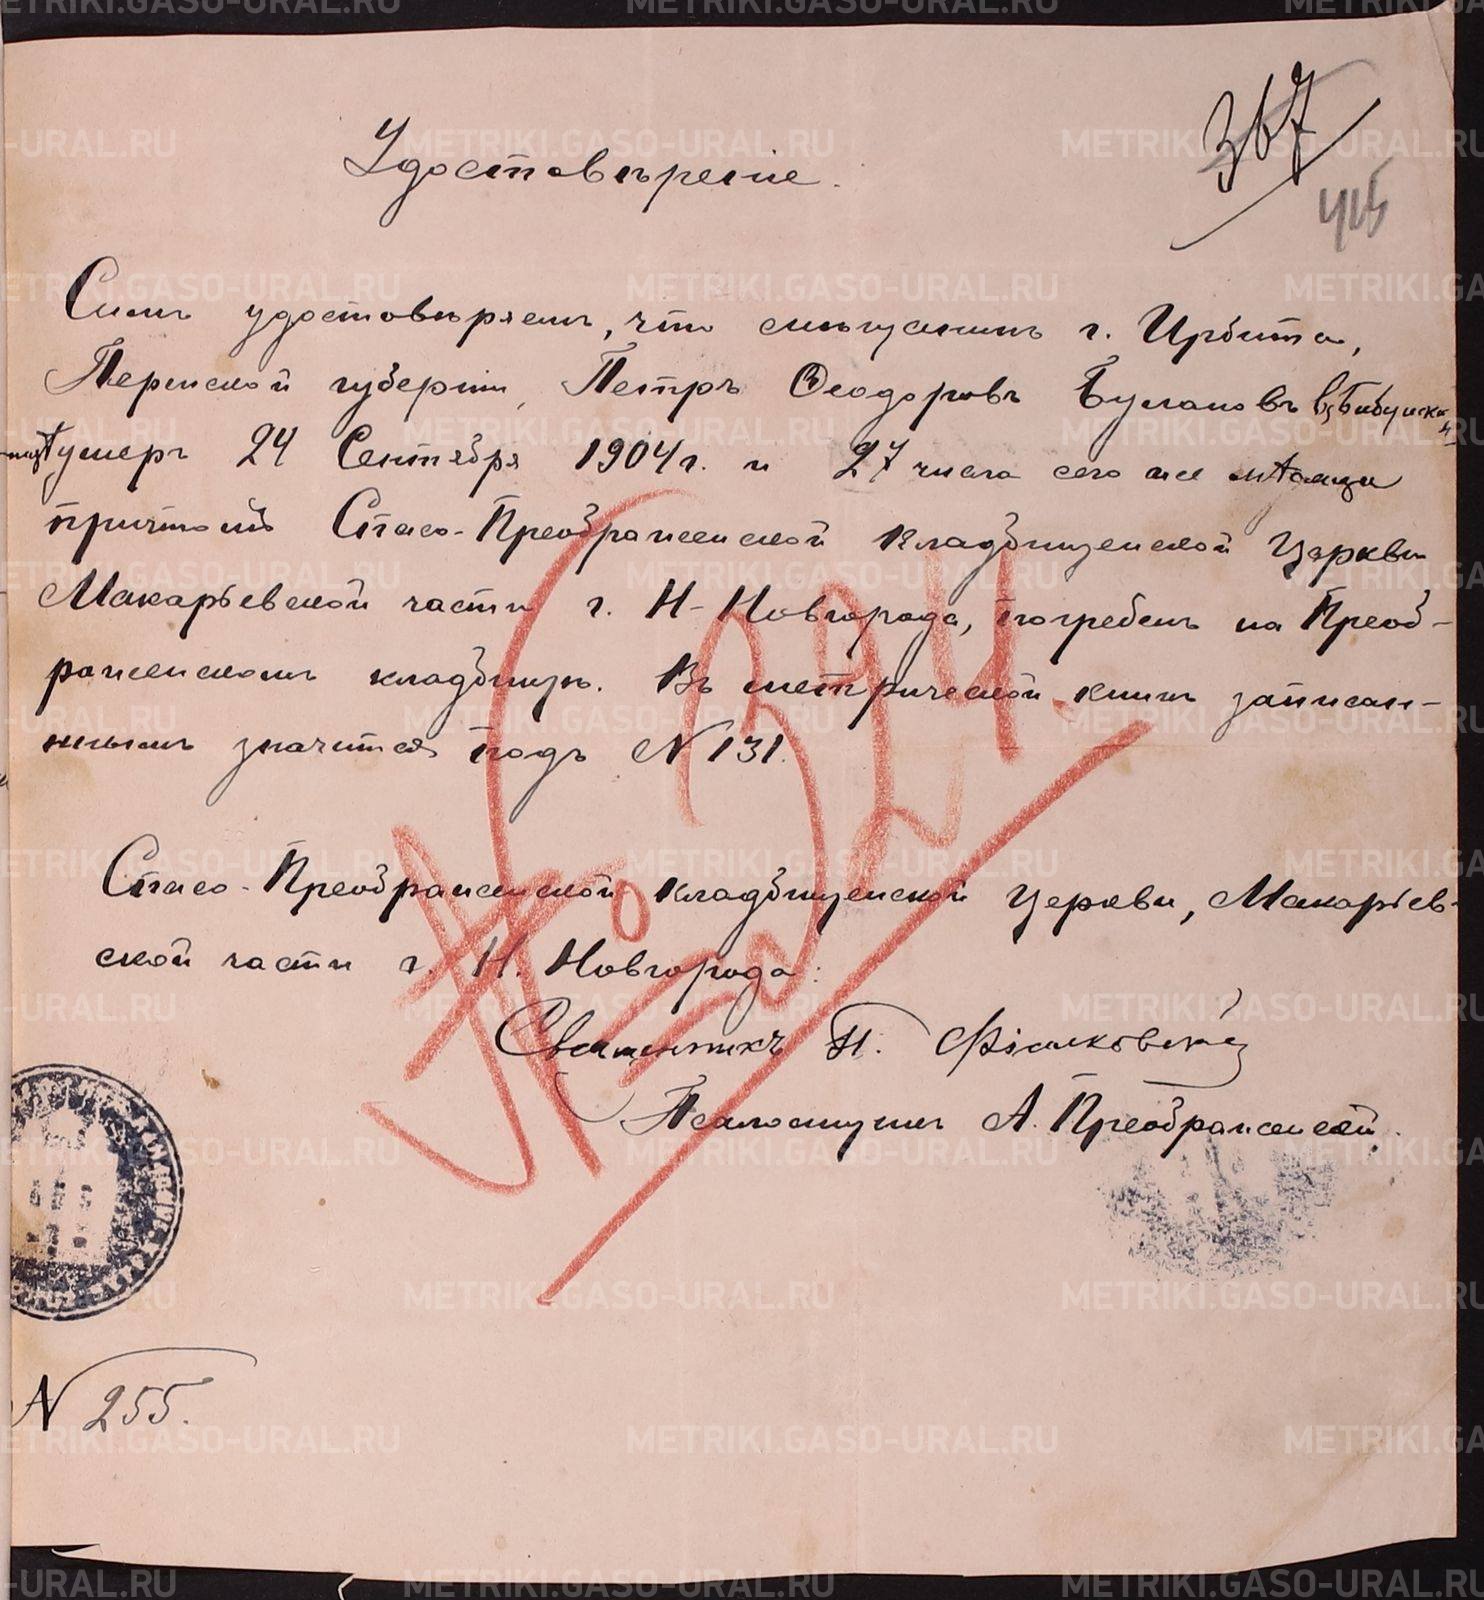 367
415
Удостовѣреніе.
Симъ удостовѣряемъ, что мѣщанинъ г. Ирбита,
Пермской губерніи, Петръ Ѳеодоровъ Булановъ
умеръ 24 Сентября 1904 г. и 27 числа сего же мѣсяца
причтомъ Спасо-Преображенской кладбищенской церкви
Макарьевской части г. Н-Новгорода, погребенъ на Преоб-
раженскомъ кладбищѣ. Въ метрической книгѣ записан-
нымъ значится подъ N 131.
Спасо-Преображенской кладбищенской церкви, Макарьев-
ской части г. Н. Новгорода:
Священникъ П. Фіалковскій
Псаломщикъ А. Преображенскій.
N 255.
METRIKI.GASO-URAL.RU